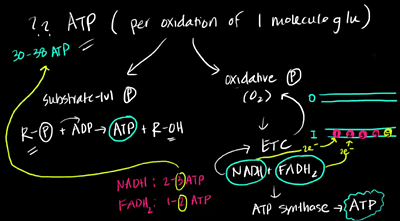 ?? ATP (per oxidation of 1 molecule glu)
30-38 ATP
substrate-lvl P
oxidative P
(O2)
R-P + ADP → ATP + R-OH
O
I
ETC
2e-
2e-
NADH + FADH2
NADH: 2-3 ATP
FADH2: 1-2 ATP
ATP synthase → ATP